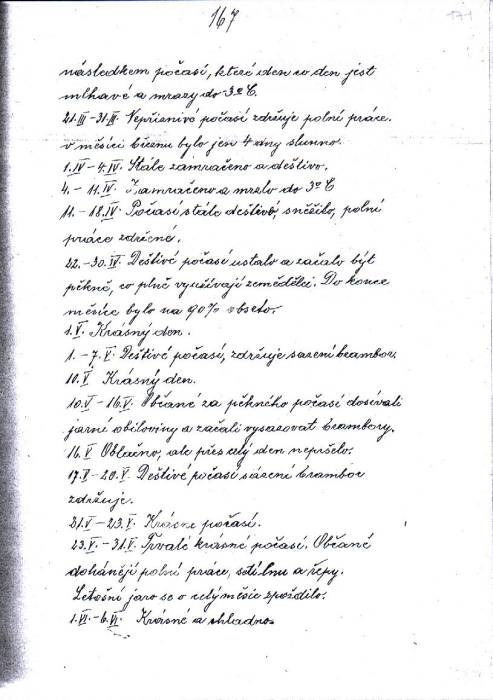 167
171
následkem počasí, které den co den jest
mlhavé a mrazy do 3°C.
21.III–31.III. Nepříznivé počasí zdržuje polní práce.
v měsíci březnu bylo jen 4 dny slunno.
1.IV–4.IV. Stále zamračeno a deštivo.
4.–11.IV. Zamračeno a mrzlo do 3°C
11.–18.IV. Počasí stále deštivé, sněžilo, polní
práce zdržené.
22.–30.IV. Deštivé počasí ustalo a začalo být
pěkně, co plně využívají zemědělci. Do konce
měsíce bylo na 90% obseto.
1.V. Krásný den.
1.–7.V. Deštivé počasí, zdržuje sazení brambor.
10.V Krásný den.
10.V–16.V. Občané za pěkného počasí dosívali
jarní obiloviny a začali vysazovat brambory.
16.V Oblačno, ale přes celý den nepršelo.
17.V–20.V. Deštivé počasí sázení brambor
zdržuje.
21.V–23.V. Krásné počasí.
23.V.–31.V. Trvalé krásné počasí. Občané
dohánějí polní práce, a řepy.
Letošní jaro se o celý měsíc zpozdilo.
1.VI–6.VI. Krásné a chladno.